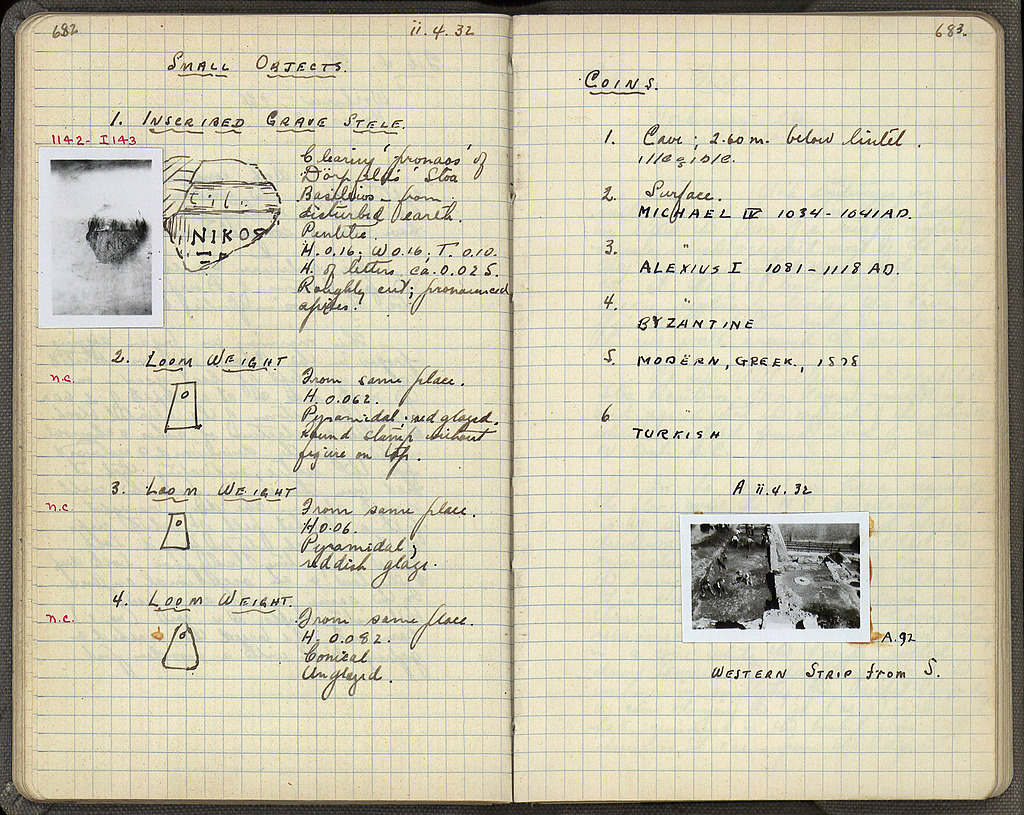 682
ii. 4. 32
SMALL OBJECTS.
1. INSCRIBED GRAVE STELE.
1142 - I 143
Clearing 'pronaos' of
Dörpfeld's 'Stoa
Basileios' - from
disturbed earth.
Pentelic.
H. 0.16; W 0.16; T. 0.10.
H. of letters ca. 0.025.
Roughly cut; pronounced
apices.
NIKOS
2. LOOM WEIGHT
n.c.
From same place.
H. 0.062.
Pyramidal; red glazed.
Round stamp without
figure on top.
3. LOOM WEIGHT
n.c.
From same place.
H 0.06.
Pyramidal;
reddish glaze.
4. LOOM WEIGHT.
n.c.
From same place.
H. 0.082.
Conical
Unglazed.
683.
COINS.
1. Cave; 2.60 m. below lintel.
illegible.
2. Surface.
MICHAEL IV 1034 - 1041 AD.
3. "
ALEXIUS I 1081 - 1118 AD.
4. "
BYZANTINE
5. MODERN, GREEK, 1878
6. "
TURKISH
A ii. 4. 32
A.92
WESTERN STRIP from S.